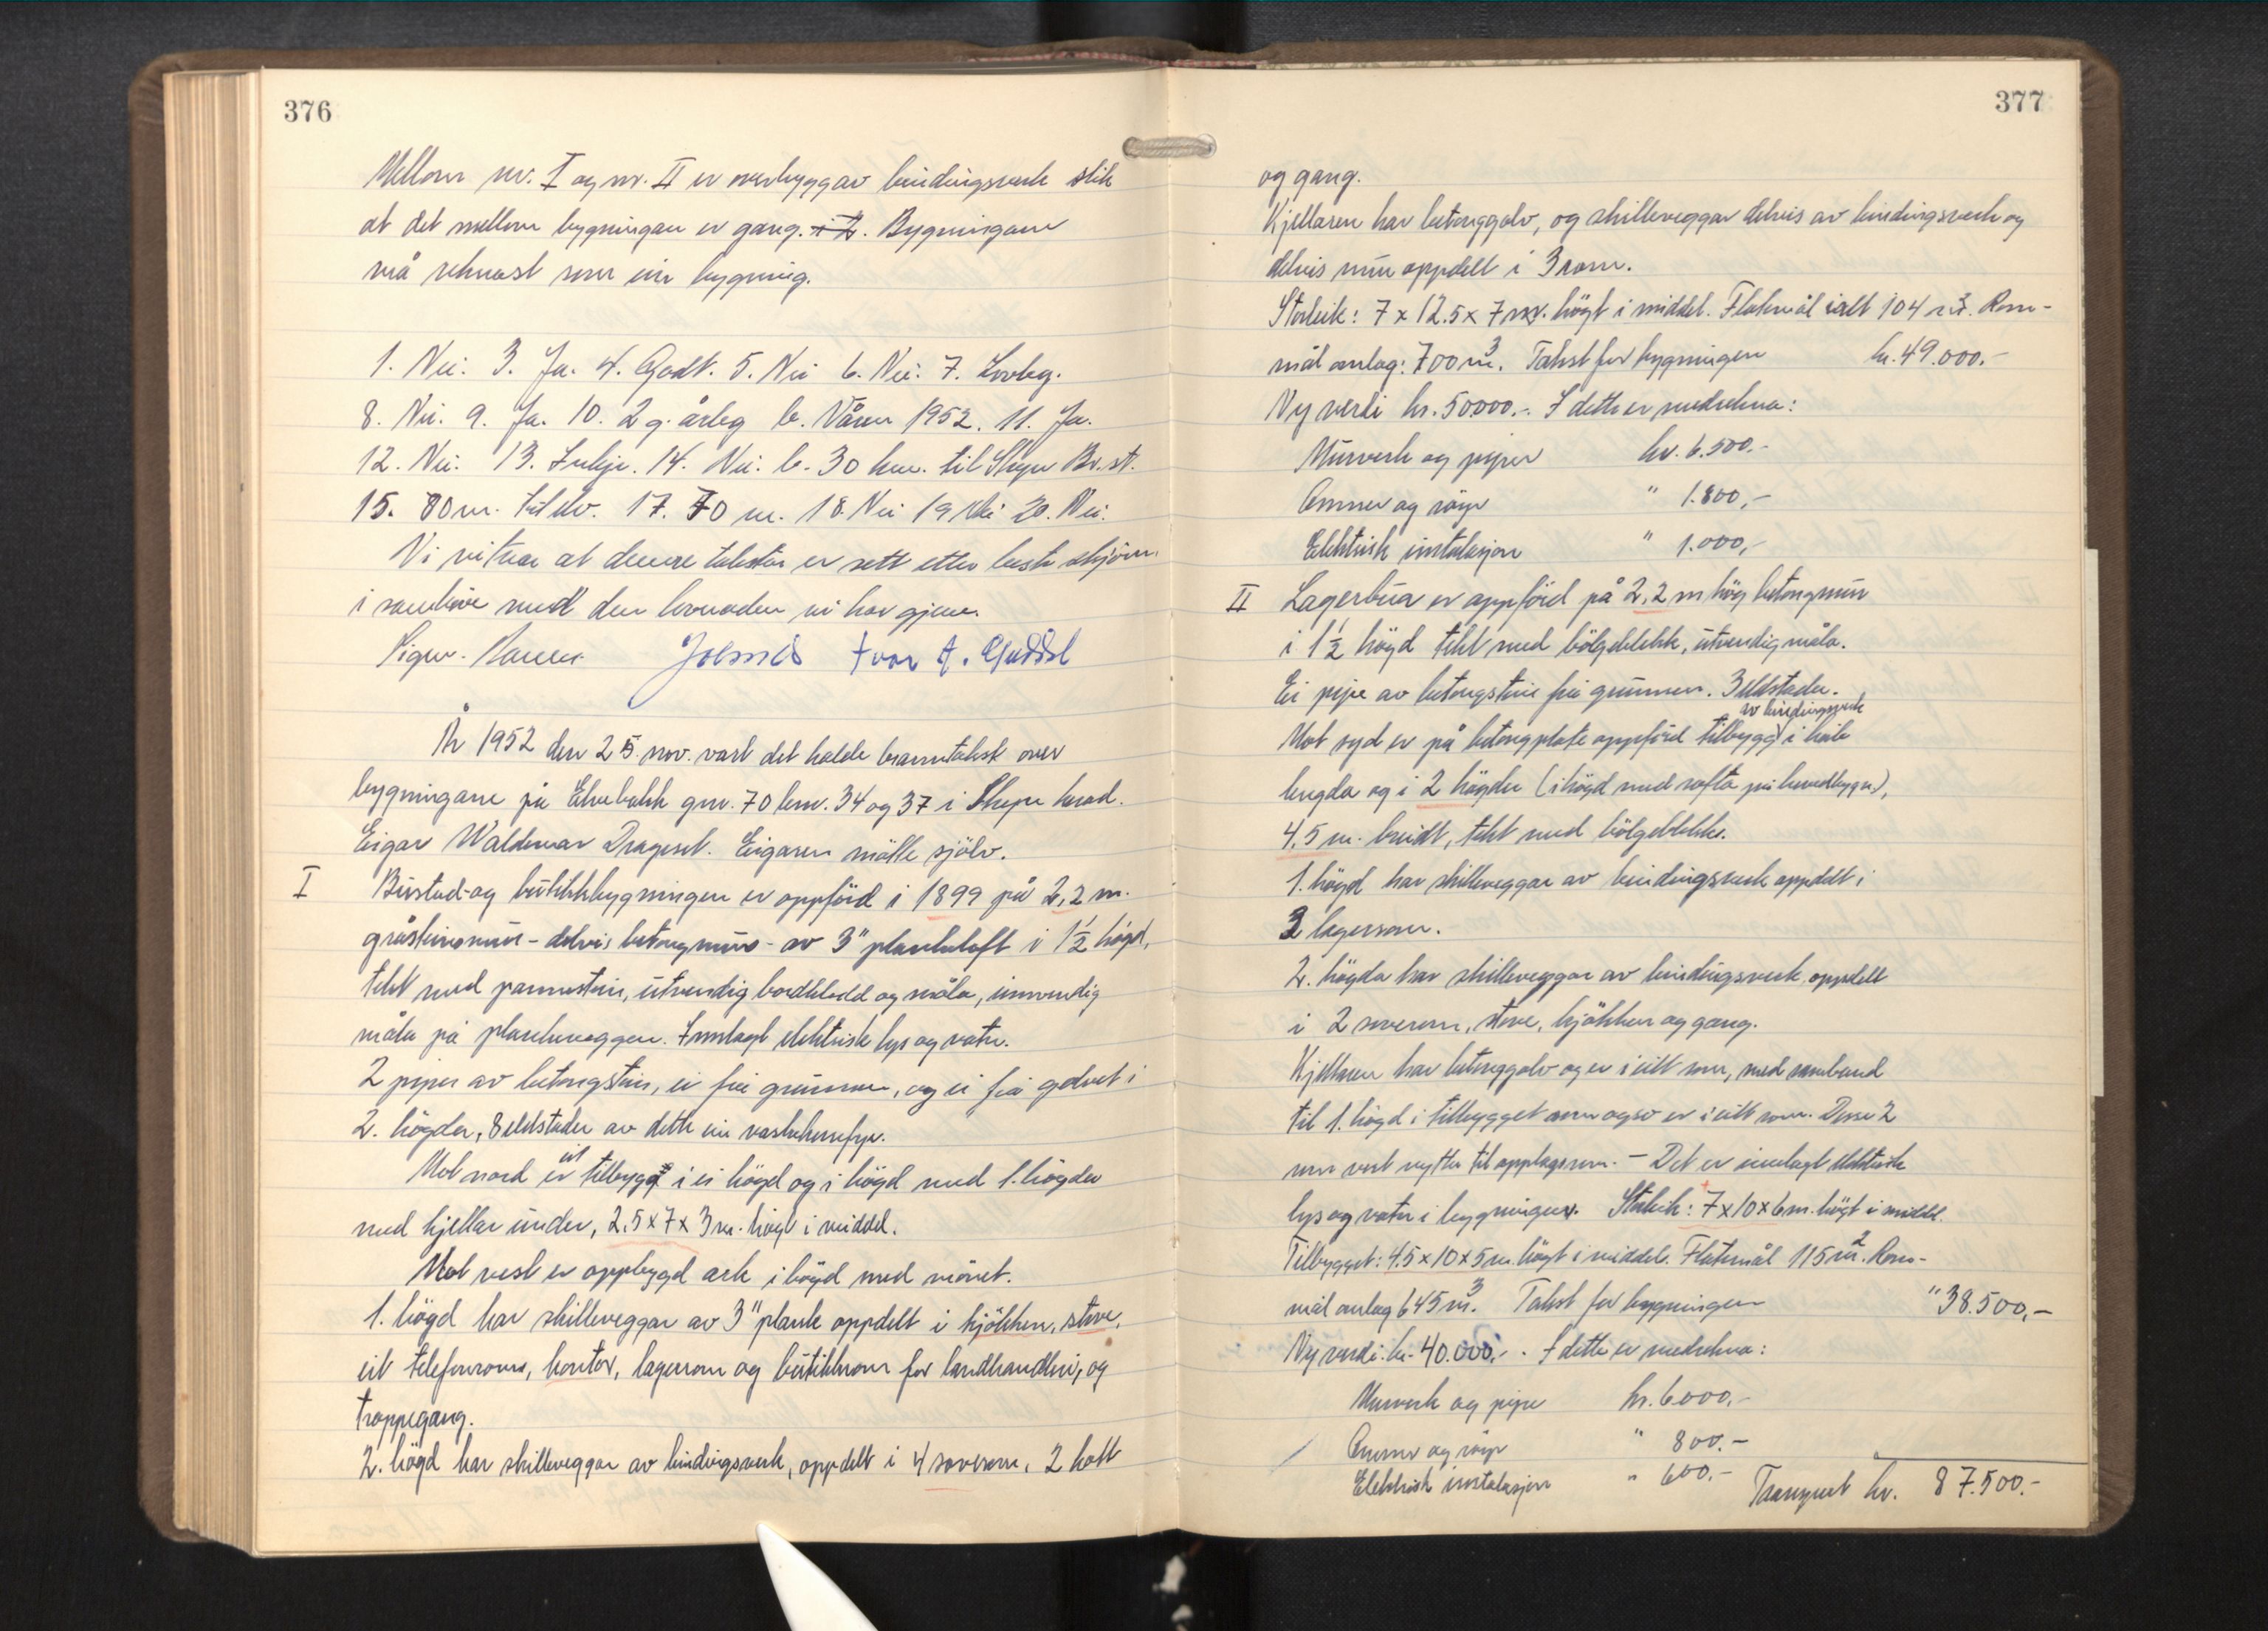 376
Mellom nr. I og nr. II er overbygg av bindingsverk slik
at det mellom bygningan er gang. Bygningane
må reknast som ein bygning.
1. Nei. 3. Ja. 4. Godt. 5. Nei 6. Nei. 7. Lovleg.
8. Nei. 9. Ja. 10. 2 g. årleg b. Våren 1952. 11. Ja.
12. Nei. 13. Inkje. 14. Nei. b. 30 km. til Skyu Br.st.
15. 80 m. til elv. 17. 70 m. 18. Nei 19 Nei 20. Nei.
Vi vitnar at denne taksten er sett etter beste skjøn
i samhøve med den lovnaden vi har gjeve.
År 1952 den 25. nov. vart det halde branntakst over
bygningane på Elvebakk gnr. 70 bnr. 34 og 37 i herad.
Eigar Waldemar Drageset. Eigaren møtte sjølv.
I Bustad- og butikkbygningen er oppförd i 1899 på 2,2 m.
gråsteinsmur - delvis betongmur - av 3" plankelaft i 1½ högd,
tekt med pannestein, utvendig bordkledd og måla, innvendig
måla på plankeveggen. Innlagt elektrisk lys og vatn.
2 piper av betongstein, ei frå grunnen, og ei frå golvet i
2. högda, 8 eldstader av dette ein vaskehusefyr.
Mot nord er eit tilbygg i ei högd og i högd med 1. högda
med kjellar under, 2.5 x 7 x 3 m. högt i middel.
Mot vest er oppbygd ark i högd med mönet.
1. högd har skilleveggar av 3" plank oppdelt i kjökken, stove,
eit telefonrom, kontor, lagerrom og butikkrom for landhandleri, og
trappegang.
2. högd har skilleveggar av bindingsverk, oppdelt i 4 soverom, 2 kott
377
og gang.
Kjellaren har betonggolv, og skilleveggar delvis av bindingsverk og
delvis mur oppdelt i 3 rom.
Storleik: 7 x 12.5 x 7 m. högt i middel. Flatemål ialt 104 m². Rom-
mål omlag: 700 m³. Takst for bygningen kr. 49.000.-
Ny verdi kr. 50.000.-. I dette er medrekna:
Murverk og piper kr. 6.500.-
Omner og röyr " 1.800,-
Elektrisk instalasjon " 1.000,-
II Lagerbua er oppförd på 2,2 m hög betongmur
i 1½ högd tekt med bölgeblekk, utvendig måla.
Ei pipe av betongstein frå grunnen. 3 eldstader.
Mot syd er på betongplate oppförd tilbygg av bindingsverk i heile
lengda og i 2 högder (i högd med rafta på hovedbygn),
4,5 m. breidt, tekt med bölgeblekk.
1. högd har skilleveggar av bindingsverk oppdelt i
3 lagerrom.
2. högda har skilleveggar av bindingsverk, oppdelt
i 2 soverom, stove, kjökken og gang.
Kjellaren har betonggolv og er i eitt rom, med samband
til 1. högd i tilbygget som også er i eitt rom. Desse 2
rom vert nytta til opplagsrom. - Det er innlagt elektrisk
lys og vatn i bygningen. Storleik: 7 x 10 x 6 m. högt i middel.
Tilbygget: 4.5 x 10 x 5 m. högt i middel. Flatemål 115 m². Rom-
mål omlag 645 m³. Takst for bygningen " 38.500,-
Ny verdi: kr. 40.000,-. I dette er medrekna:
Murverk og pipe kr. 6.000,-
Omner og röyr " 800.-
Elektrisk instalasjon " 600.-
Transport kr. 87.500.-